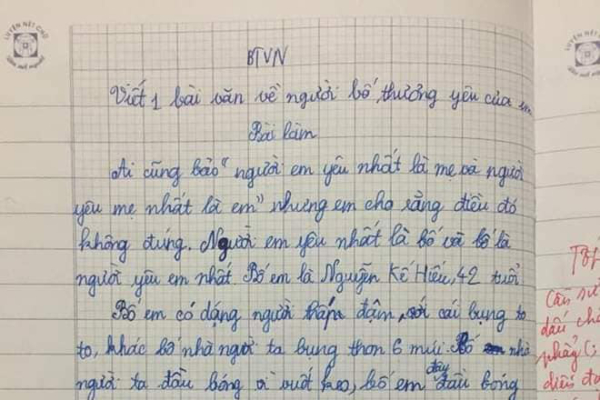 LUYỆN NÉT CHỮ
BTVN
Viết 1 bài văn về người bố thương yêu của em
Bài làm
Ai cũng bảo "người em yêu nhất là mẹ và người
yêu mẹ nhất là em" nhưng em cho rằng điều đó
không đúng. Người em yêu nhất là bố và bố là
người yêu em nhất. Bố em là Nguyễn Kế Hiếu, 42 tuổi
Bố em có dáng người đậm, với cái bụng to
to, khác bố nhà người ta bụng thon 6 múi. Bố nhà
người ta đầu bóng vì vuốt keo, bố em đầu bóng
đây
Cần
dấu